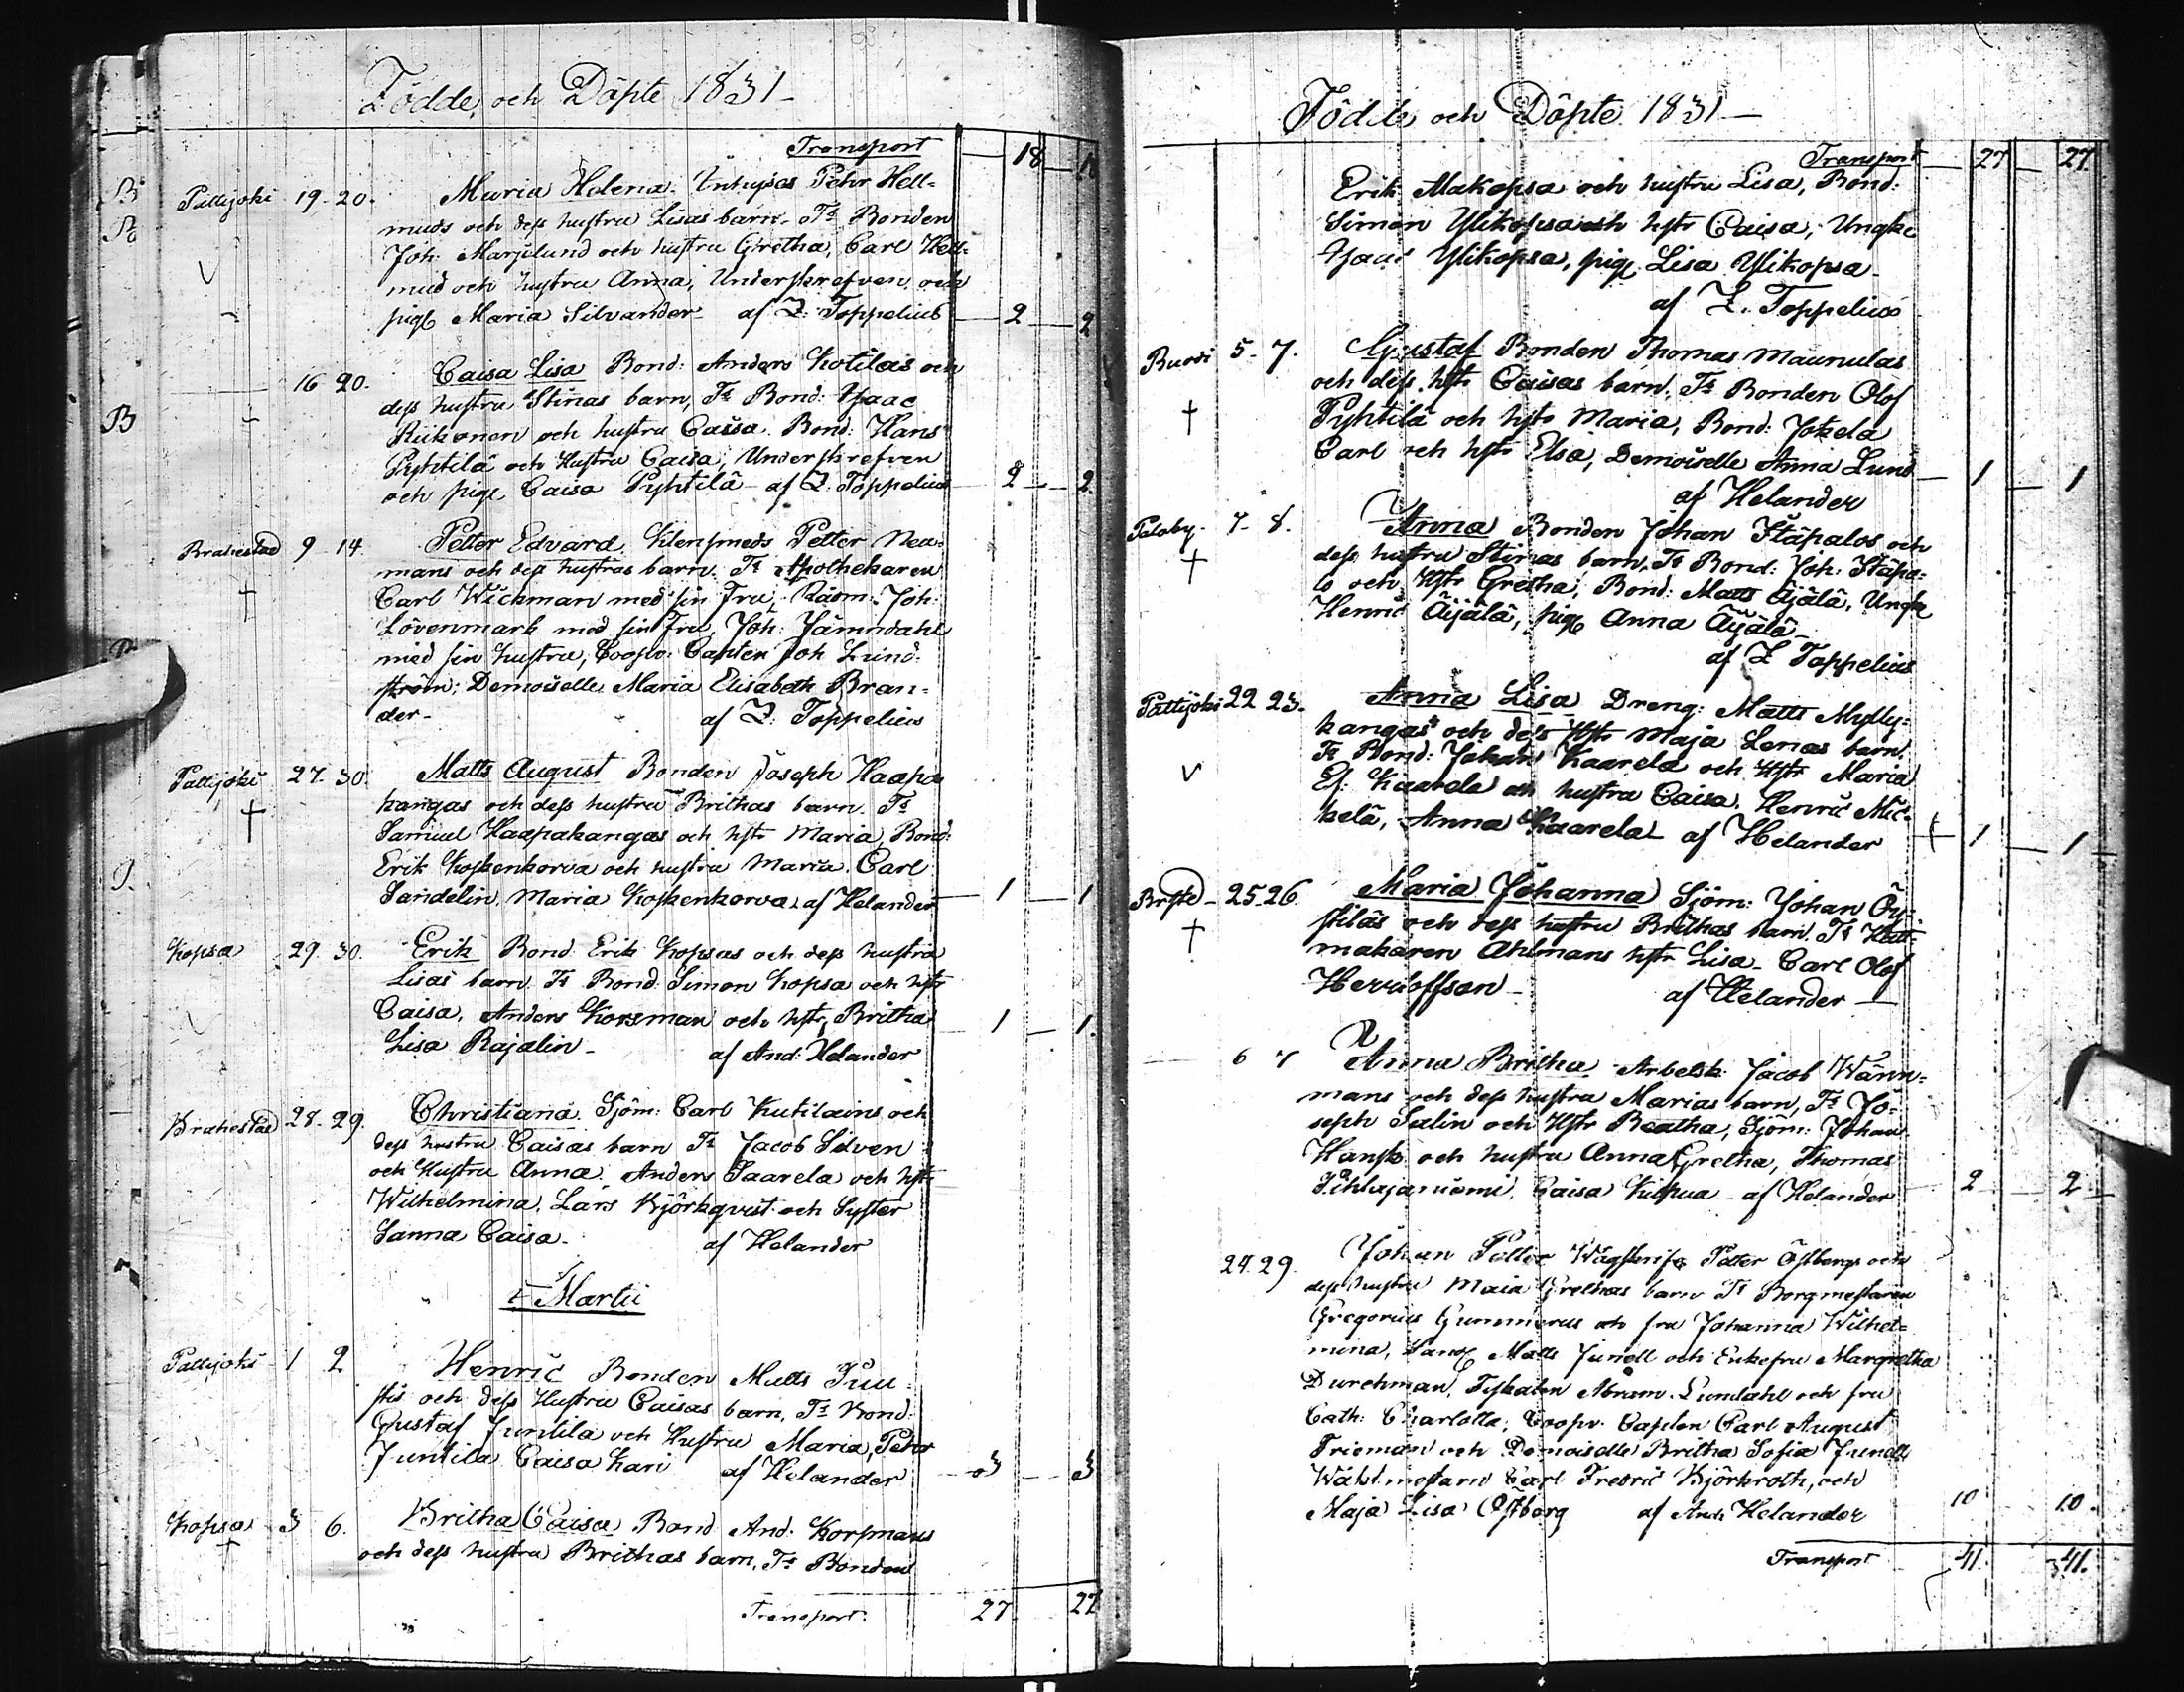 Födde och Döpte 1831
Transport 18
Pattijoki 19-20. Maria Helena Inhyses Pehr Hell-
muds och dess hustru Lisas barn. Fr Bonden
Joh: Marjelund och hustru Gretha, Carl Hell-
mud och hustru Anna, Underskrefven och
pig Maria Silvander af Z. Toppelius 2 2
16 20. Caisa Lisa Bond: Anders Kotilas och
dess hustru Stinas barn, Fr Bond: Isaac
Riikonen och hustru Caisa. Bond: Hans
Pyhtilä och Hustru Caisa, Underskrefven
och pige Caisa Pyhtilä af Z. Toppelius 2 2
Brahestad 9-14. Petter Edvard, Klensmeds Petter Neu-
mans och dess hustrus barn. Fr Apothekaren
Carl Wickman med sin Fru, Rådm: Joh:
Lövenmark med sin Fru, Joh: Jämndahl
med sin hustru, Coopv: Capten Joh Lund-
ström; Demoiselle Maria Elisabeth Bran-
der- af Z. Toppelius
Pattijoki 27. 30. Matts August Bonden Joseph Haapa
kangas och dess hustru Brithas barn. Fr
Samuel Haapakangas och hstr Maria, Bond:
Erik Koskenkorva och hustru Maria. Carl
Sandelin, Maria Koskenkorva af Helander 1 1
Kopsa 29. 30. Erik Bond. Erik Kopsas och dess hustru
Lisas barn. Fr Bond. Simon Kopsa och hstr
Caisa, Anders Korsman och hstr Britha 1 1.
Lisa Rajalin- af And: Helander
Brahestad 28. 29. Christiana. Sjöm: Carl Kutilains och
dess hustru Caisas barn Fr Jacob Silven
och Hustru Anna, Anders Saarela och hstr
Wilhelmina. Lars Björkqvist och Syster
Sanna Caisa- af Helander
Martii
Pattijoki 1 2 Henric Bonden Matts Juu
stis och dess Hustru Caisas barn, Fr Bond:
Gustaf Juntila och Hustru Maria, Pehr
Juntila Caisa Kari af Helander 3 3
Kopsa 3 6. Britha Caisa Bond And. Korsmans
och dess hustru Brithas barn. Fr Bonden
Transport. 27 27
Födde och Döpte 1831
Transport 27 27
Erik Makopsa och hustru Lisa, Bond:
Simon Ylikopsa och hstr Caisa, Ungke
Isaac Ylikopsa, pige Lisa Ylikopsa
af Z. Toppelius
5-7. Gustaf Bonden Thomas Maunulas
och dess hstr Caisas barn, Fr Bonden Olof
Pyhtilä och hstr Maria, Bond: Jokela
Carl och hstr Elsa, Demoiselle Anna Lund 1 1
af Helander
Paloby 7-8. Anna Bonden Johan Ståpalos och
dess hustru Stinas barn, Fr Bond: Joh: Ståpa-
lo och hstr Gretha, Bond: Matts Äijälä, Ungke
Henric Äijälä, pige Anna Äijälä-
af Z Toppelius
Pattijoki 22 23. Anna Lisa Dreng: Matts Mylly-
kangas och dess hstr Maja Lenas barn.
Fr Bond: Johan Kaarela och hstr Maria
Kaarela och hustru Caisa. Henric Mic-
kelä, Anna Kaarela af Helander 1 1
Brstd- 25 26. Maria Johanna Sjöm: Johan Öy-
stiläs och dess hustru Brithas barn, Fr Hatt-
makaren Ahlmans hstr Lisa- Carl Olof
af Helander
6 7 Anna Britha Arbetsk: Jacob Wänn-
mans och dess hustru Marias barn, Fr Jo-
seph Salin och Hstr Beatha, Sjöm: Johan
och hustru Anna Gretha, Thomas
Pihlajaniemi, Caisa Kilkua - af Helander 2 2
24. 29. Johan Petter Petter Östbergs och
dess hustru Maia Grethas barn Fr Borgmestaren
Gregorius Gummerus och fru Johanna Wilhel-
mina, Matts Junell och Enkefru Margretha
Durchman, Fiskalen Abram Lundahl och fru
Cath: Charlotta, Coopv. Capten Carl August
Frieman och Demoiselle Britha Sofia Junell
Carl Fredric Björkroth, och
Maja Lisa Östberg af And: Helander 10 10.
Transport 41. 41.